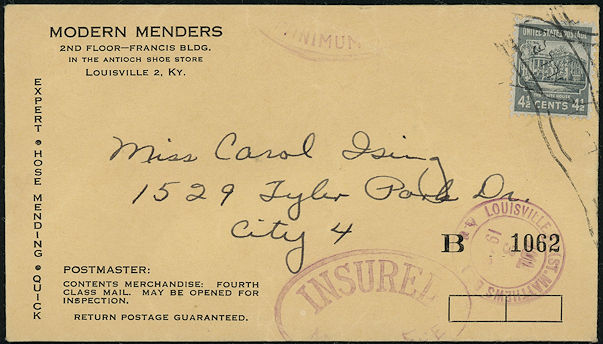 MODERN MENDERS
2ND FLOOR—FRANCIS BLDG.
IN THE ANTIOCH SHOE STORE
LOUISVILLE 2, KY.
EXPERT • HOSE MENDING • QUICK
MINIMUM
UNITED STATES POSTAGE
WHITE HOUSE
4½ CENTS 4½
Miss Carol Ising
1529 Tyler Park Dr.
City 4
LOUISVILLE
ST. MATTHEWS
B 1062
INSURED
POSTMASTER:
CONTENTS MERCHANDISE: FOURTH
CLASS MAIL. MAY BE OPENED FOR
INSPECTION.
RETURN POSTAGE GUARANTEED.